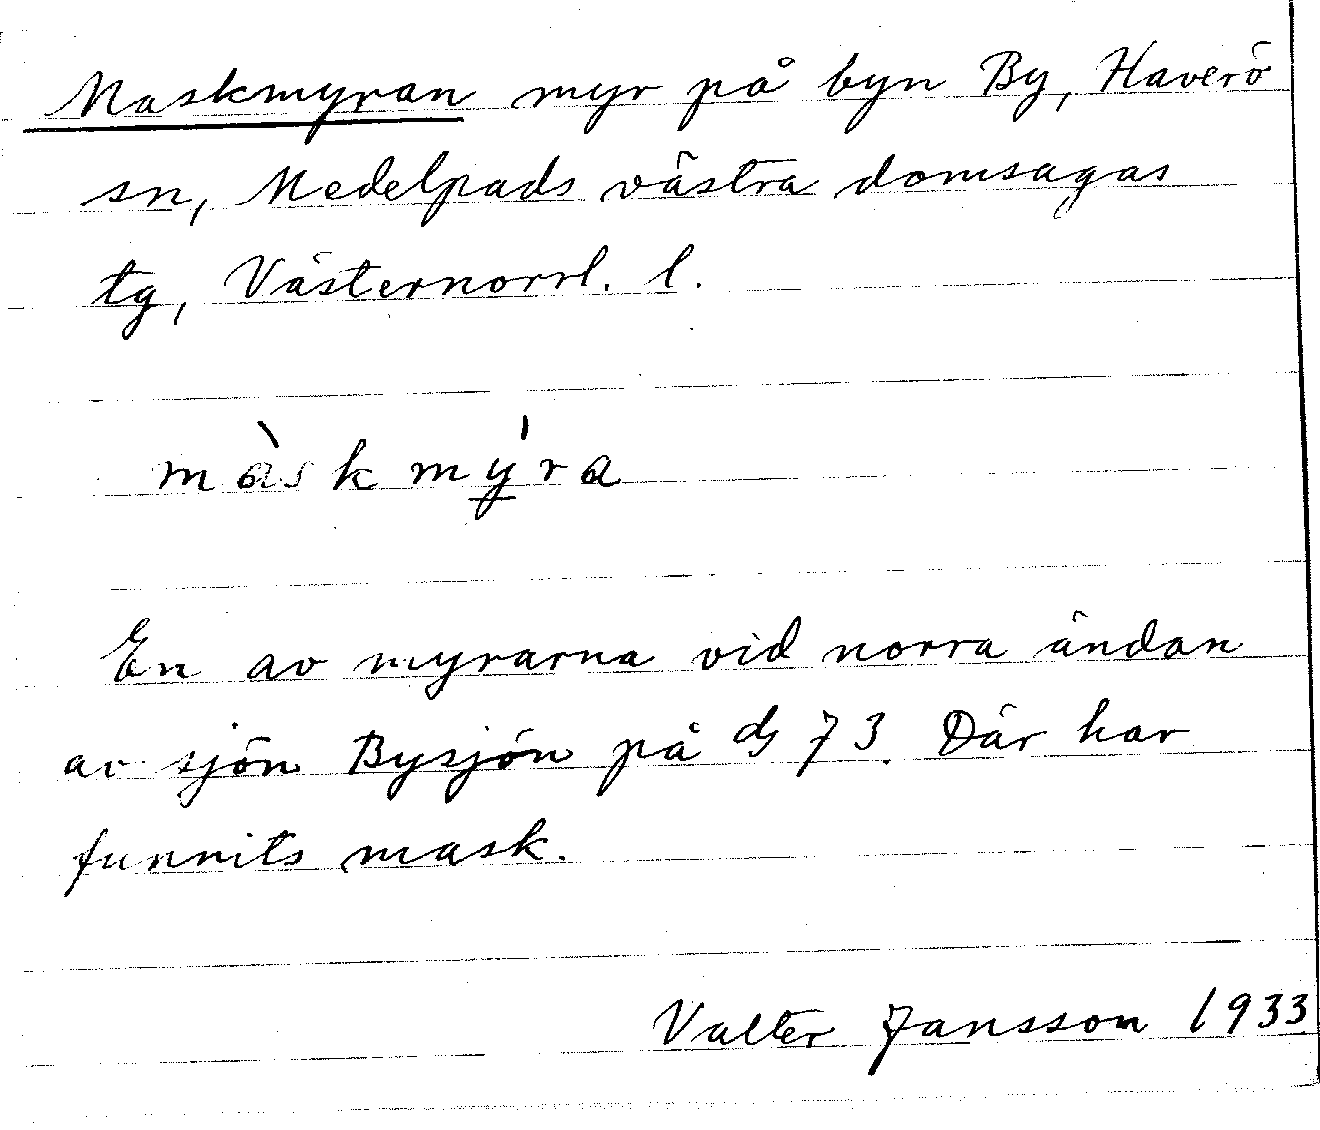 Maskmyran myr på byn By, Haverö
sn, Medelpads västra domsagas
tg, Västernorrl. l.
màskmýra
En av myrarna vid norra ändan
av sjön Bysjön på 73. Där har
funnits mask.
Valter Jansson 1933